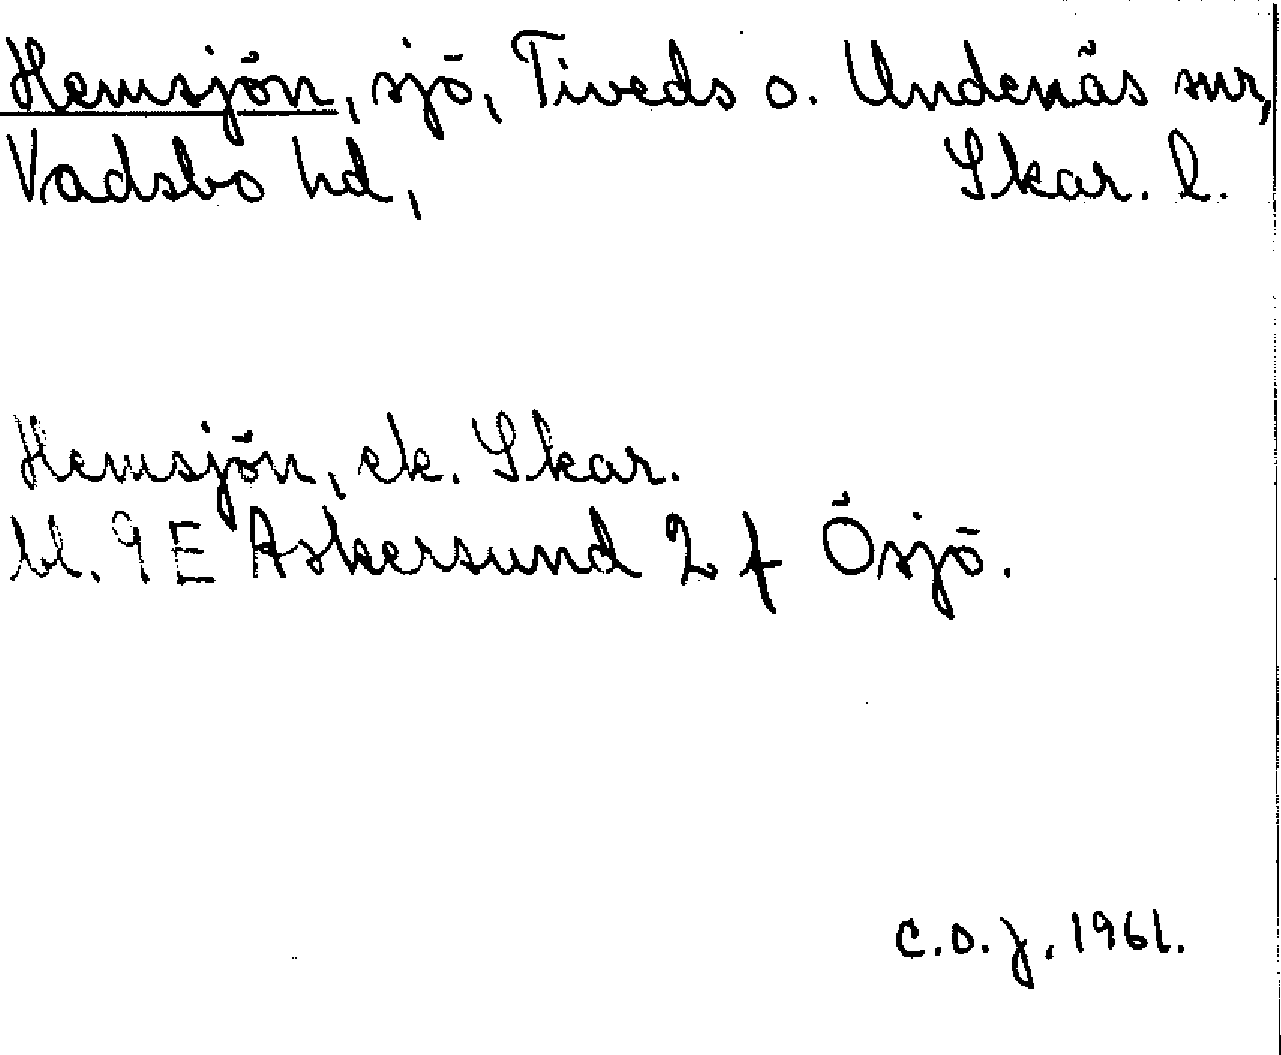 Hemsjön, sjö, Tiveds o. Undenäs snr,
Vadsbo hd, Skar. l.
Hemsjön, ek. Skar.
bl. 9E Askersund 2 f Ösjö.
C.O.J. 1961.